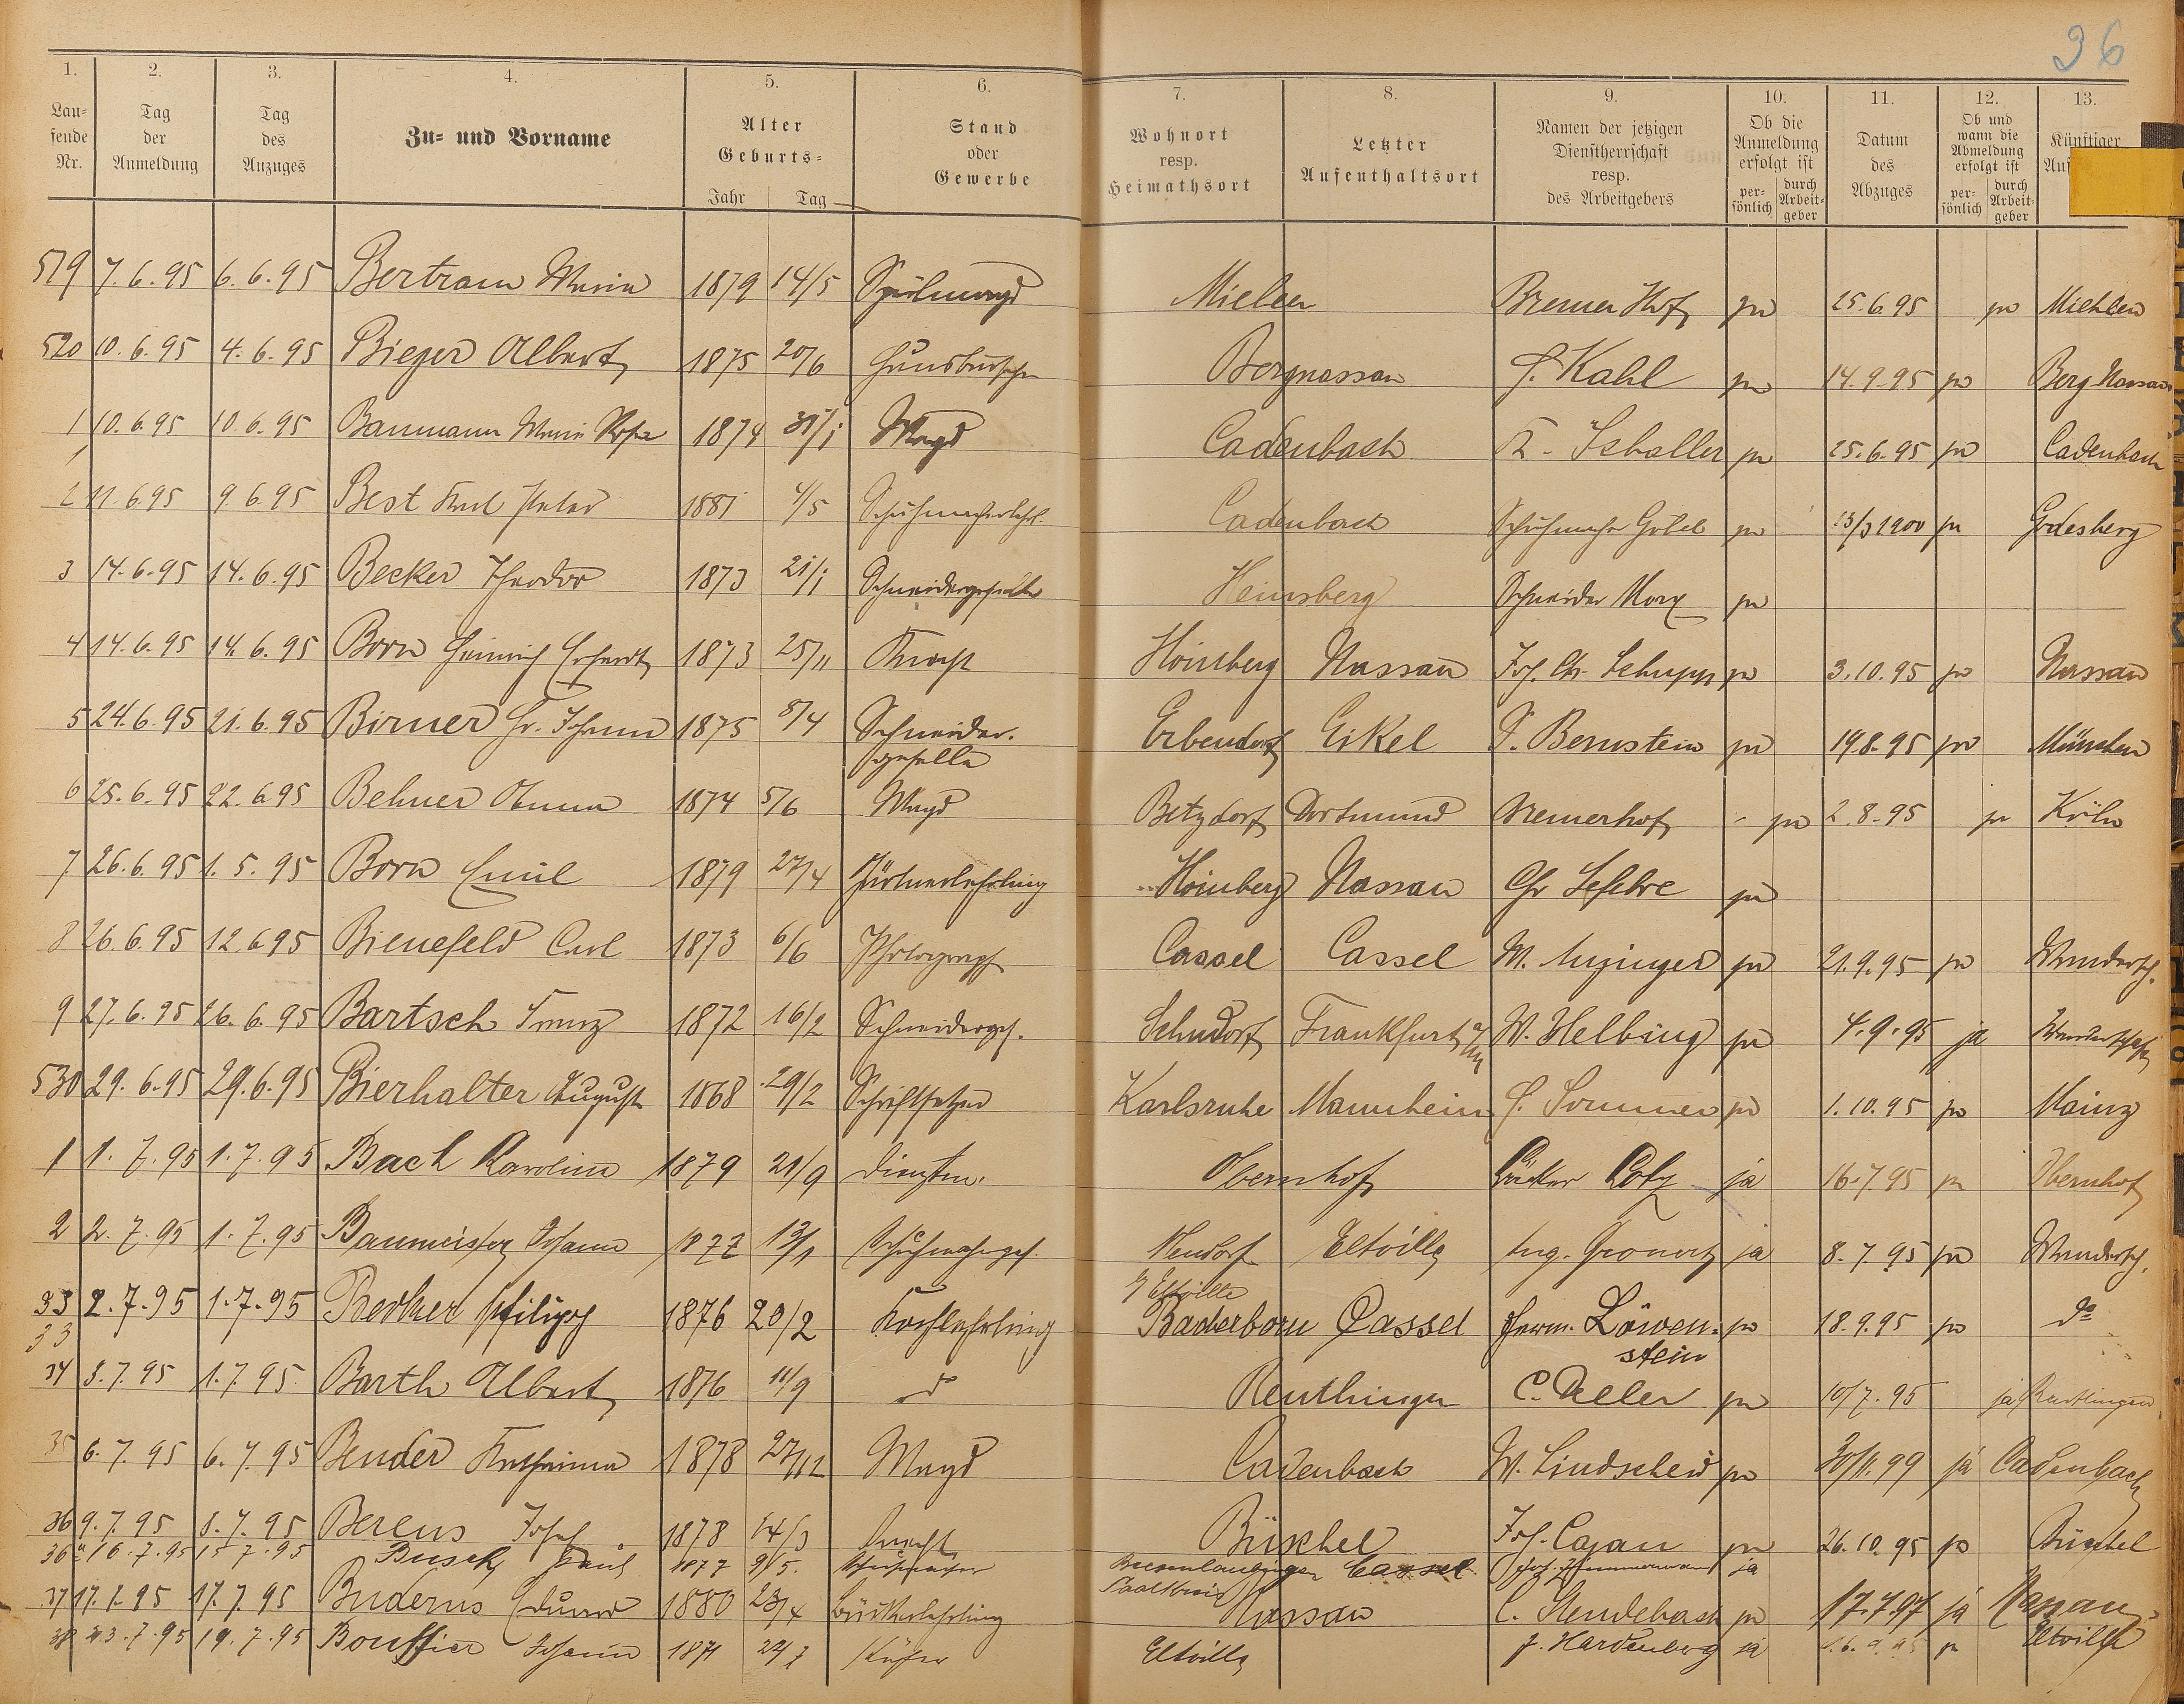 36
1. 2. 3. 4. 5. 6. 7. 8. 9. 10. 11. 12. 13.
Lau=
fende
Nr.
Tag
der
Anmeldung
Tag
des
Anzuges
Zu= und Vorname
Alter
Geburts=
Jahr Tag
Stand
oder
Gewerbe
Wohnort
resp.
Heimathsort
Letzter
Aufenthaltsort
Namen der jetzigen
Dienstherrschaft
resp.
des Arbeitgebers
Ob die
Anmeldung
erfolgt ist
per=
sönlich
durch
Arbeit=
geber
Datum
des
Abzuges
Ob und
wann die
Abmeldung
erfolgt ist
per=
sönlich
durch
Arbeit=
geber
Künftiger
519 7.6.95 6.6.95 Bertram Maria 1879 14/5 Spülmagd Mielen Bremer Hof ja 25.6.95 ja Miehlen
520 10.6.95 4.6.95 Bieger Albert 1875 20/6 Hausbursche Bergnassau J. Kahl ja 14.9.95 ja Berg Nassau
1 10.6.95 10.6.95 Baumann Maria Rosa 1874 Magd Cadenbach ja 25.6.95 ja Cadenbach
2 11.6.95 9.6.95 Best Karl Peter 1881 4/5 Schuhmacherlehrl. Cadenbach Schuhmacher Göbel ja 1900 ja Godesberg
3 14.6.95 14.6.95 Becker Theodor 1873 21/1 Schneidergeselle Heinsberg Schneider Marx ja
4 14.6.95 14.6.95 Born Heinrich 1873 25/11 Knecht Homberg Nassau Jos. Ch. Schupp ja 3.10.95 ja Nassau
5 24.6.95 21.6.95 Birner Gr. Johann 1875 8/4 Schneider- Erbendorf Eikel S. Bernstein ja 19.8.95 ja München
geselle
6 25.6.95 22.6.95 Behner Anna 1874 5/6 Magd Betzdorf Dortmund Bremerhof - ja 2.8.95 ja Köln
7 26.6.95 1.5.95 Born Emil 1879 27/4 Gärtnerlehrling Homberg Nassau Chr Lefebre ja
8 26.6.95 12.6.95 Bienefeld Carl 1873 6/6 Photograph Cassel Cassel M. ja 21.9.95 ja Wandersch.
9 27.6.95 26.6.95 Bartsch Franz 1872 16/2 Schneiderges. Frankfurt a/M W. Helbing ja 4.9.95 ja Wanderschaft
530 29.6.95 29.6.95 Bierhalter August 1868 29/2 Schriftsetzer Karlsruhe Mannheim J. Sommer ja 1.10.95 ja Mainz
1 1.7.95 1.7.95 Bach Karoline 1879 21/9 Dienstm. Obernhof Bäcker Lotz ja 16.7.95 ja Obernhof
2 2.7.95 1.7.95 Baumeister Johann 1877 13/1 Schuhmacherges. Neudorf Eltville Aug. ja 8.7.95 ja Wandersch.
b/ Eltville
33 2.7.95 1.7.95 Becker Philipp 1876 20/2 Kochlehrling Paderborn Cassel Herm. Löwen- ja 18.9.95 ja do
33 stein
34 3.7.95 1.7.95 Barth Albert 1876 11/9 do Reuthlingen C. Deller ja 10/7.95 ja Reutlingen
35 6.7.95 6.7.95 Bender Katharina 1878 27/12 Magd Cadenbach W. Lindscheid ja 30/11.99 ja Cadenbach
36 9.7.95 8.7.95 Berens Josef 1878 14/3 Knecht Büschel Jos. Cajan ja 26.10.95 ja Büschel
36a 16.7.95 15.7.95 Busch Paul 1877 9/5. Schuhmacher Cassel Joh. Zimmermann ja
37 17.7.95 17.7.95 Buderus Eduard 1880 23/4 Bäckerlehrling Nassau C. Stendebach ja 17.7.97 ja Nassau
38 23.7.95 19.7.95 Bouffier Johann 1871 Küfer Eltville J. Hardenberg ja ja Eltville